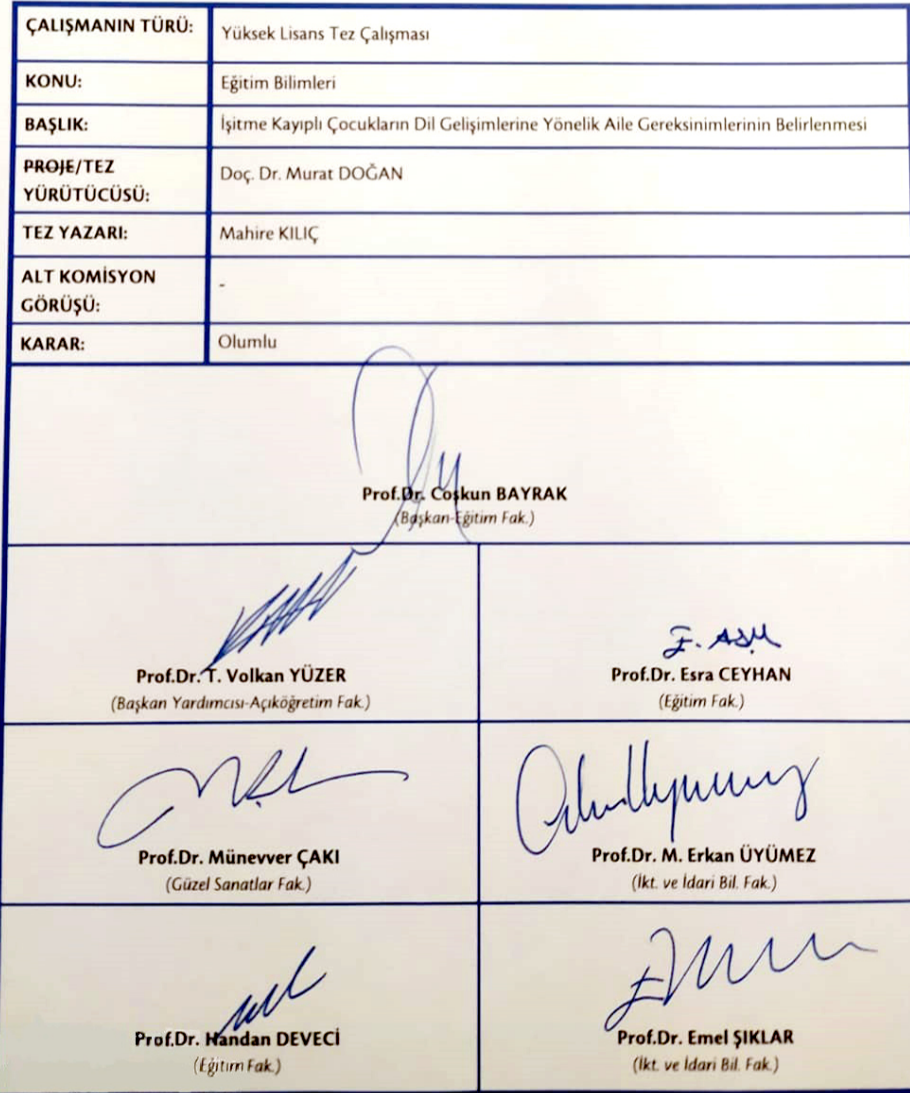 ÇALIŞMANIN TÜRÜ: Yüksek Lisans Tez Çalışması
KONU: Eğitim Bilimleri
BAŞLIK: İşitme Kayıplı Çocukların Dil Gelişimlerine Yönelik Aile Gereksinimlerinin Belirlenmesi
PROJE/TEZ
YÜRÜTÜCÜSÜ: Doç. Dr. Murat DOĞAN
TEZ YAZARI: Mahire KILIÇ
ALT KOMİSYON
GÖRÜŞÜ: -
KARAR: Olumlu
Prof.Dr. Coşkun BAYRAK
(Başkan-Eğitim Fak.)
Prof.Dr. T. Volkan YÜZER
(Başkan Yardımcısı-Açıköğretim Fak.)
Prof.Dr. Esra CEYHAN
(Eğitim Fak.)
Prof.Dr. Münevver ÇAKI
(Güzel Sanatlar Fak.)
Prof.Dr. M. Erkan ÜYÜMEZ
(İkt. ve İdari Bil. Fak.)
Prof.Dr. Handan DEVECİ
(Eğitim Fak.)
Prof.Dr. Emel ŞIKLAR
(İkt. ve İdari Bil. Fak.)